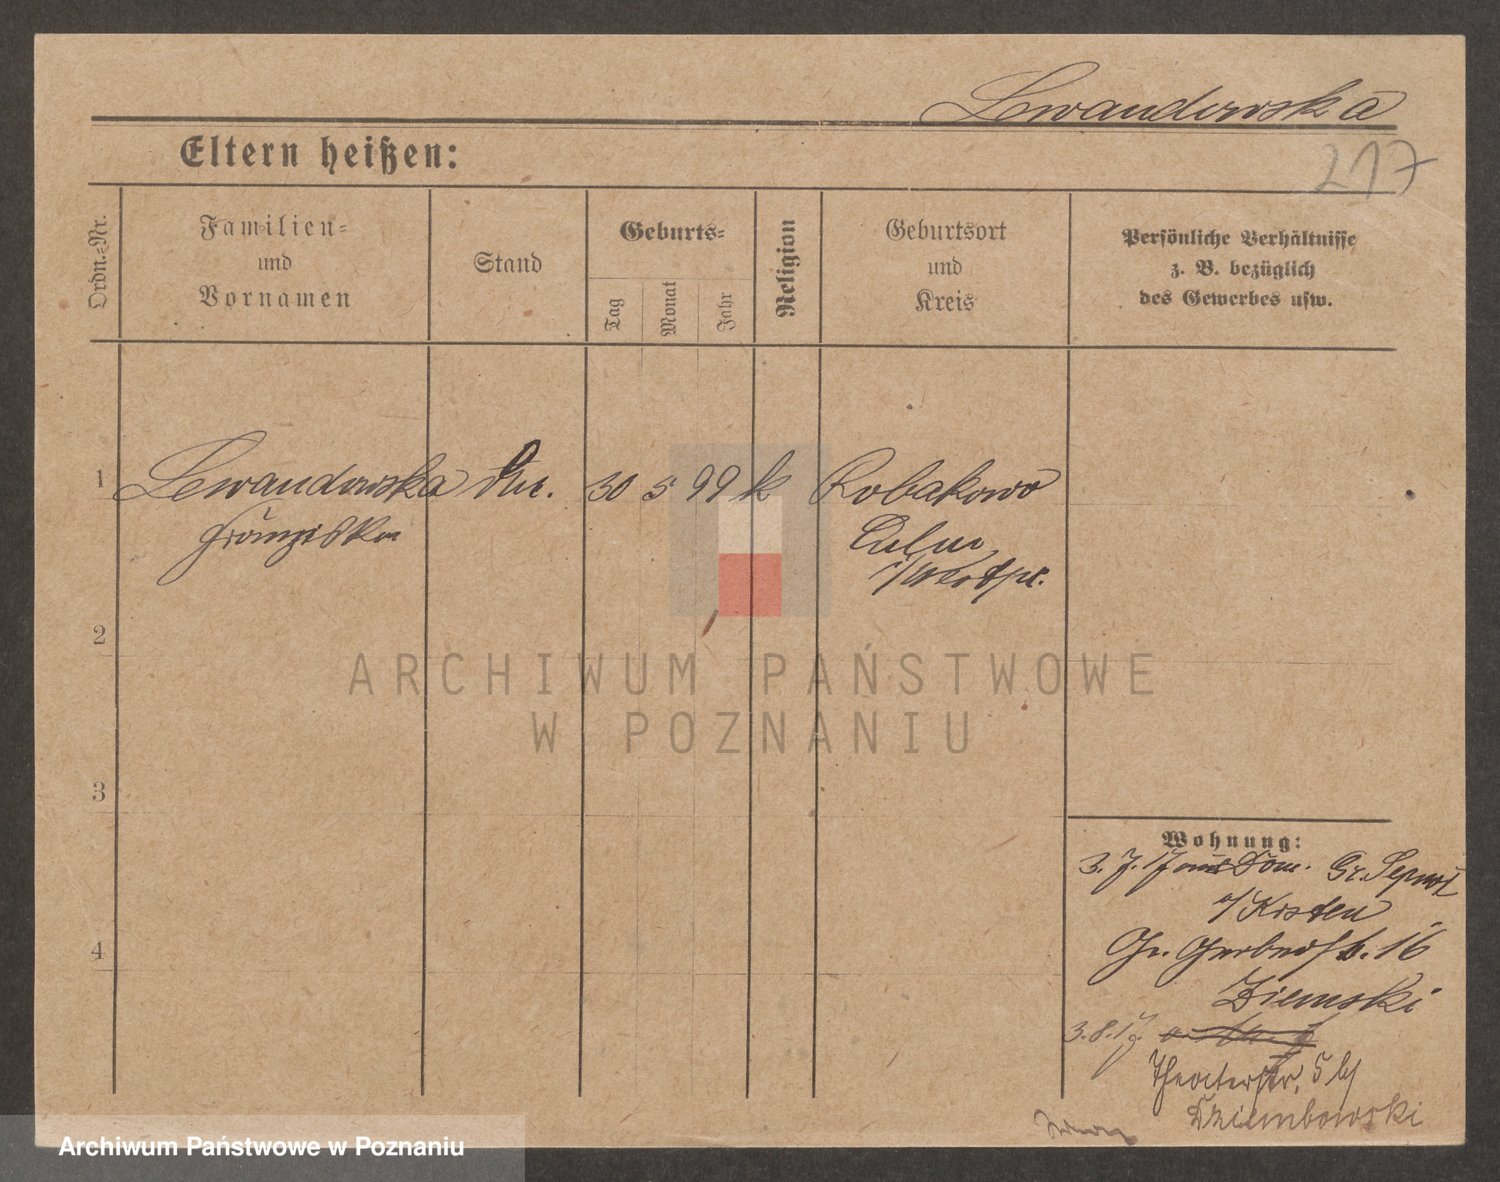 Lewandowska
217
Eltern heißen:
Ordn.-Nr.
Familien-
und
Vornamen
Stand
Geburts-
Tag
Monat
Jahr
Religion
Geburtsort
und
Kreis
Persönliche Verhältnisse
z. B. bezüglich
des Gewerbes usw.
1 Lewandowska 30 5 99 k Robakowo
Franziska Culm
i/Westpr.
2
ARCHIWUM PAŃSTWOWE
W POZNANIU
3
Wohnung:
3. 7. 17 aus Dom. Gr.
4
Gr. Gerberstr. 16
Ziemski
3.8.17.
Theaterstr. 5 b/
Dziembowski
Archiwum Państwowe w Poznaniu